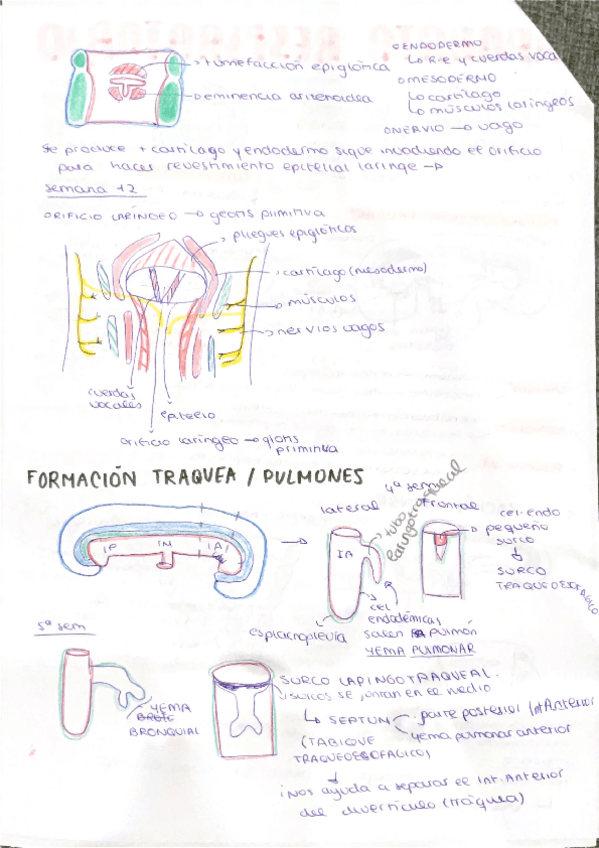 → tumefacción epiglótica
→ eminencia aritenoidea
○ ENDODERMO
↳ R.E y cuerdas vocal
○ MESODERMO
↳ cartílago
↳ músculos laríngeos
○ NERVIO → vago
Se produce + cartílago y endodermo sigue invadiendo el orificio
para hacer revestimiento epitelial laringe →
semana 12
ORIFICIO LARÍNGEO → glotis primitiva
pliegues epiglóticos
cartílago (mesodermo)
músculos
nervios vagos
cuerdas
vocales
epitelio
orificio laríngeo → glotis
primitiva
FORMACIÓN TRAQUEA / PULMONES
4ª sem
lateral
frontal
tubo
laringotraqueal
IP IM IA
IA
cel. endo
pequeño
surco
SURCO
TRAQUEOESOFÁGICO
esplacnopleura
cel
endodérmicas
salen PULMÓN
YEMA PULMONAR
5ª sem
YEMA
BRONQUIAL
SURCO LARINGOTRAQUEAL.
¡surcos se juntan en el medio
↳ SEPTUM
parte posterior Int Anterior
yema pulmonar anterior
(TABIQUE
TRAQUEOESOFAGICO)
¡Nos ayuda a separar el Int. Anterior
del divertículo (tráquea)